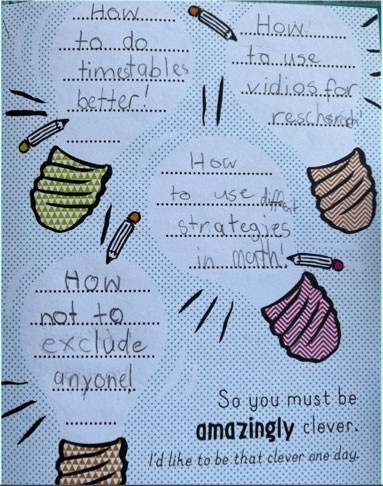 How
to do
timestables
better!
How
to use
vidios for
How
to use different
strategies
in math!
How
not to
exclude
anyone!
So you must be
amazingly clever.
I'd like to be that clever one day.